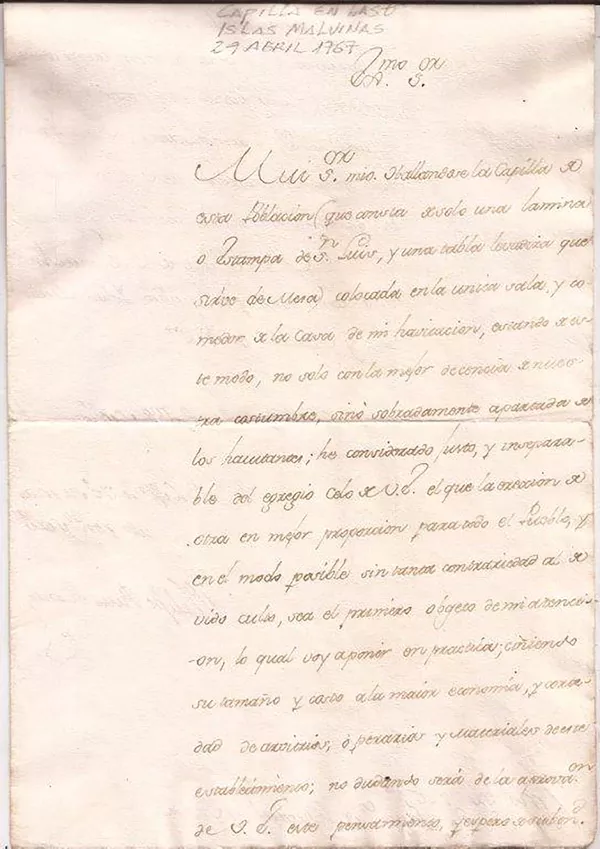 CAPILLA EN LAS
ISLAS MALVINAS
29 ABRIL 1767
Exmo Sor
Mui Sor mio. Hallandose la Capilla de
esta Poblacion (que consta de solo una lamina
o Estampa de Sn Luis, y una tabla levadiza que
sirve de Mesa) colocada en la unica sala, y co-
medor de la Casa de mi havitacion, estando de es-
te modo, no solo con la mejor decencia de nues-
tra costumbre, sinó sobradamente apartada de
los havitantes; he considerado justo, y insepara-
ble del egregio celo de V.E. el que la ereccion de
otra en mejor proporcion para todo el Pueblo, y
en el modo posible sin tanta contrariedad al de-
vido culto, sea el primero objeto de mi atenci-
on, lo qual voy aponer en practica; ciñiendo
su tamaño y costo a la maior economía, y
dad de arvitrios, óperarios y Materiales de este
establecimiento; no dudando será de la aprovaon
de V.E. este pensamiento, y espero